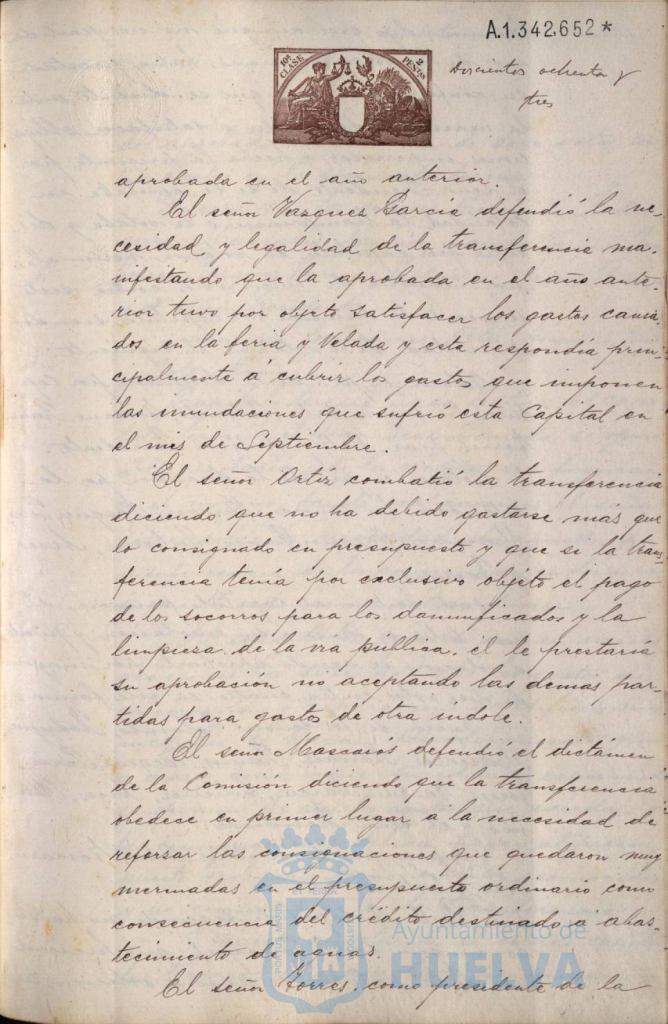 A.1.342.652*
10ª CLASE
2 PESETAS
Doscientos ochenta y
tres
aprobada en el año anterior.
El señor Vazquez Garcia defendió la ne-
cesidad y legalidad de la transferencia ma-
nifestando que la aprobada en el año ante-
rior tuvo por objeto satisfacer los gastos causa-
dos en la feria y Velada y esta respondia prin-
cipalmente á cubrir los gastos que imponen
las inundaciones que sufrió esta Capital en
el mes de Septiembre.
El señor Ortíz combatió la transferencia
diciendo que no ha debido gastarse más que
lo consignado en presupuesto y que si la trans-
ferencia tenía por exclusivo objeto el pago
de los socorros para los damnificados y la
limpieza de la vía pública, él le prestaría
su aprobación no aceptando las demas par-
tidas para gastos de otra índole.
El señor Mascarós defendió el dictámen
de la Comisión diciendo que la transferencia
obedece en primer lugar á la necesidad de
reforzar las consignaciones que quedaron muy
mermadas en el presupuesto ordinario como
consecuencia del crédito destinado á abas-
tecimiento de aguas.
El señor Torres, como presidente de la
Ayuntamiento de
HUELVA